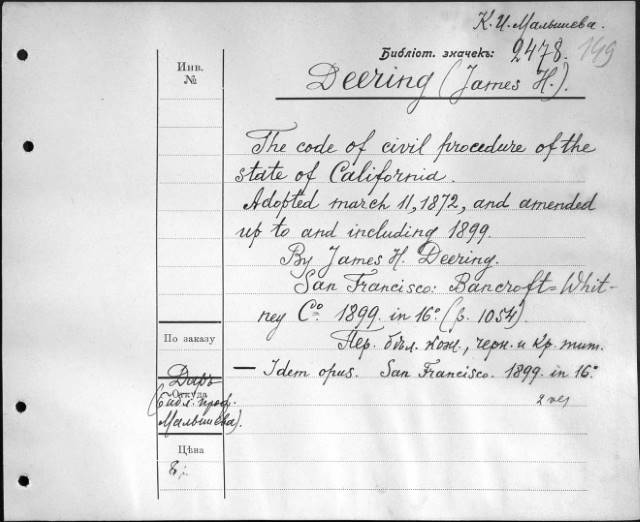 К. И. Малышева.
Библіот. значекъ: 2478. 199
Инв.
№
Deering (James H.).
The code of civil procedure of the
state of California.
Adopted march 11, 1872, and amended
up to and including 1899.
By James H. Deering.
San Francisco: Bancroft=Whit-
ney Cº. 1899. in 16º (p. 1054).
Пер. бѣл. кож., черн. и кр. тит.
— Idem opus. San Francisco. 1899. in 16º
По заказу
Даръ
Откуда
(библ. проф.
Малышева).
Цѣна